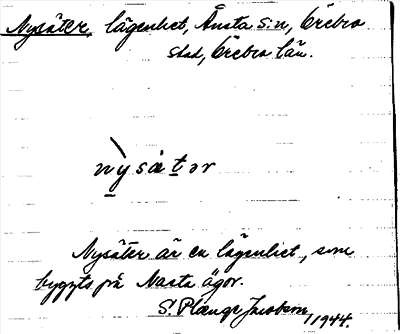 Nysäter, lägenhet, Ånsta s:n, Örebro
stad, Örebro län.
nỳsätər
Nysäter är en lägenhet, som
byggts på Nasta ägor.
S. Plænge Jacobson, 1944.